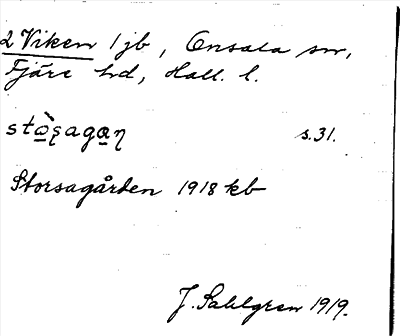 2 Viken 1 jb, Onsala sn,
Fjäre hd, Hall. l.
stɷ̀ʂagaɳ s. 31.
Storsagården 1918 kb
J. Sahlgren 1919.